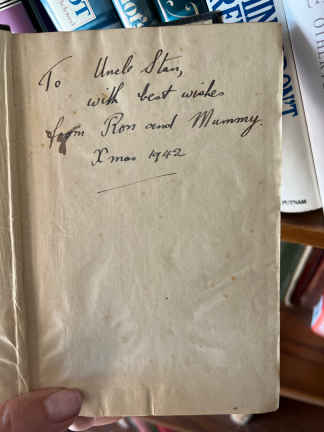 To Uncle Stan,
with best wishes
from Ron and Mummy.
Xmas 1942
PUTNAM